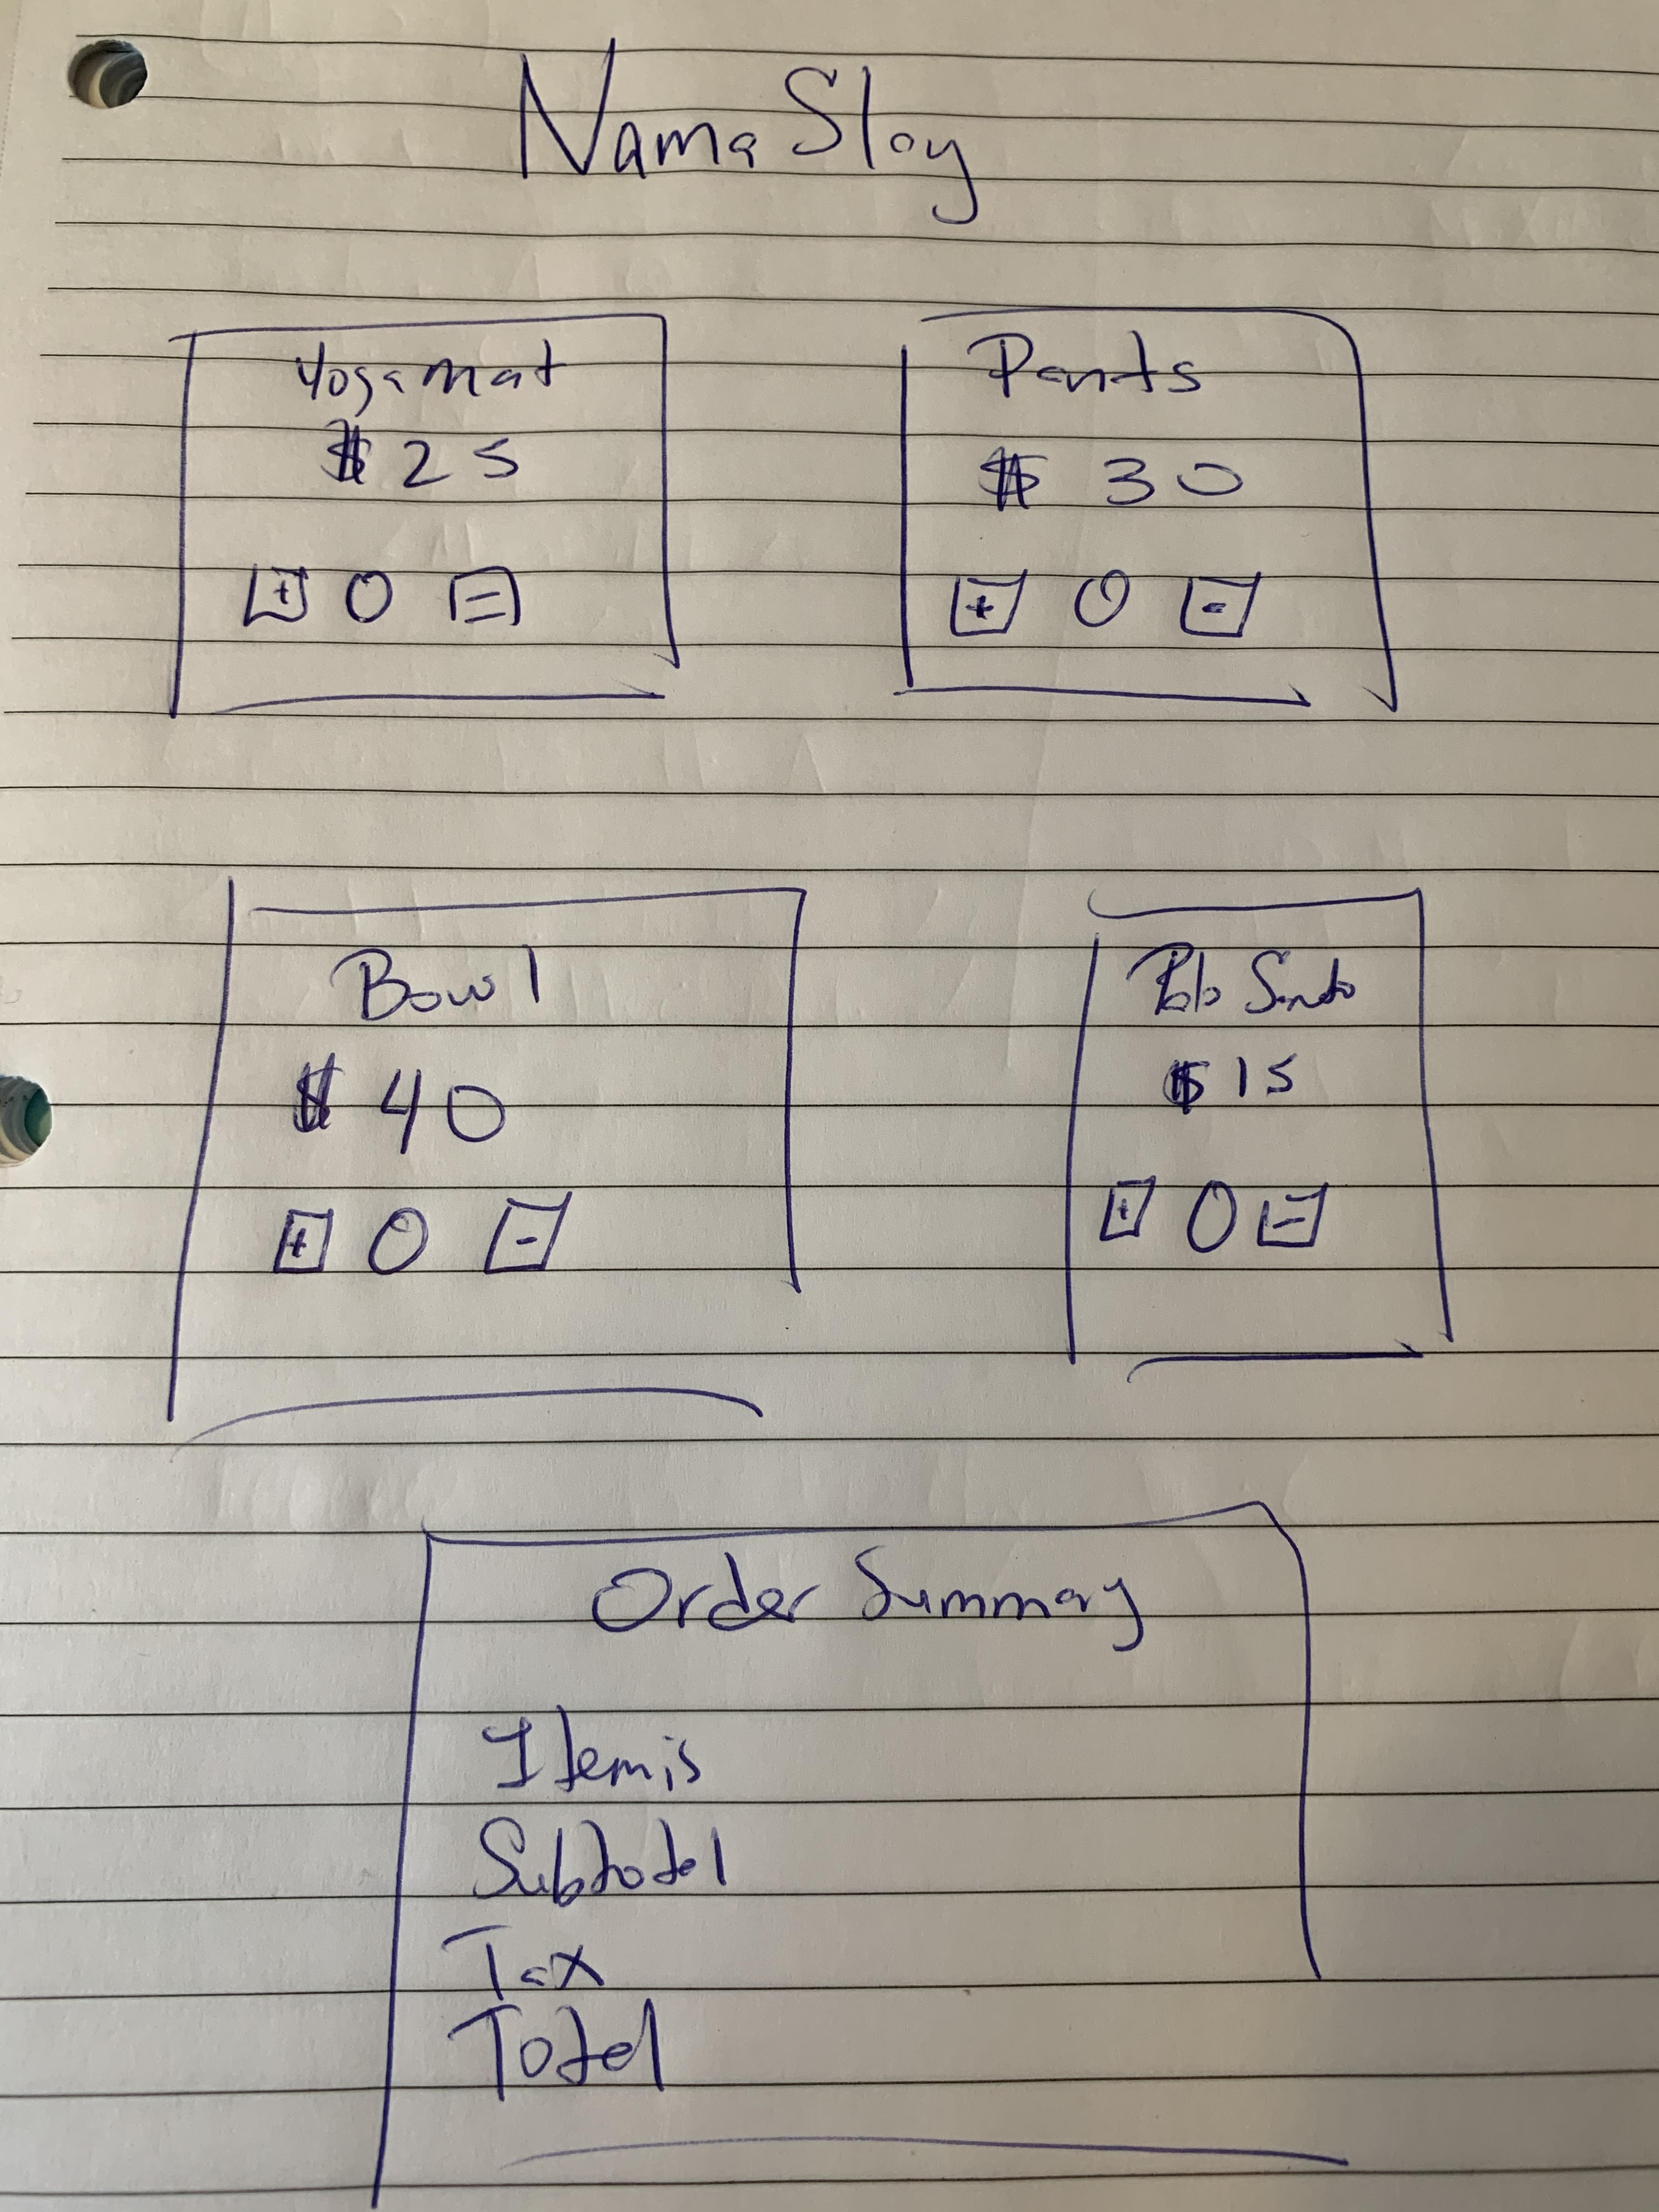 Nama Slay
Yoga mat
$ 25
+ 0 -
Pants
$ 30
+ 0 -
Bowl
$ 40
+ 0 -
$ 15
+ 0 -
Order Summary
Items
Subtotal
Tax
Total